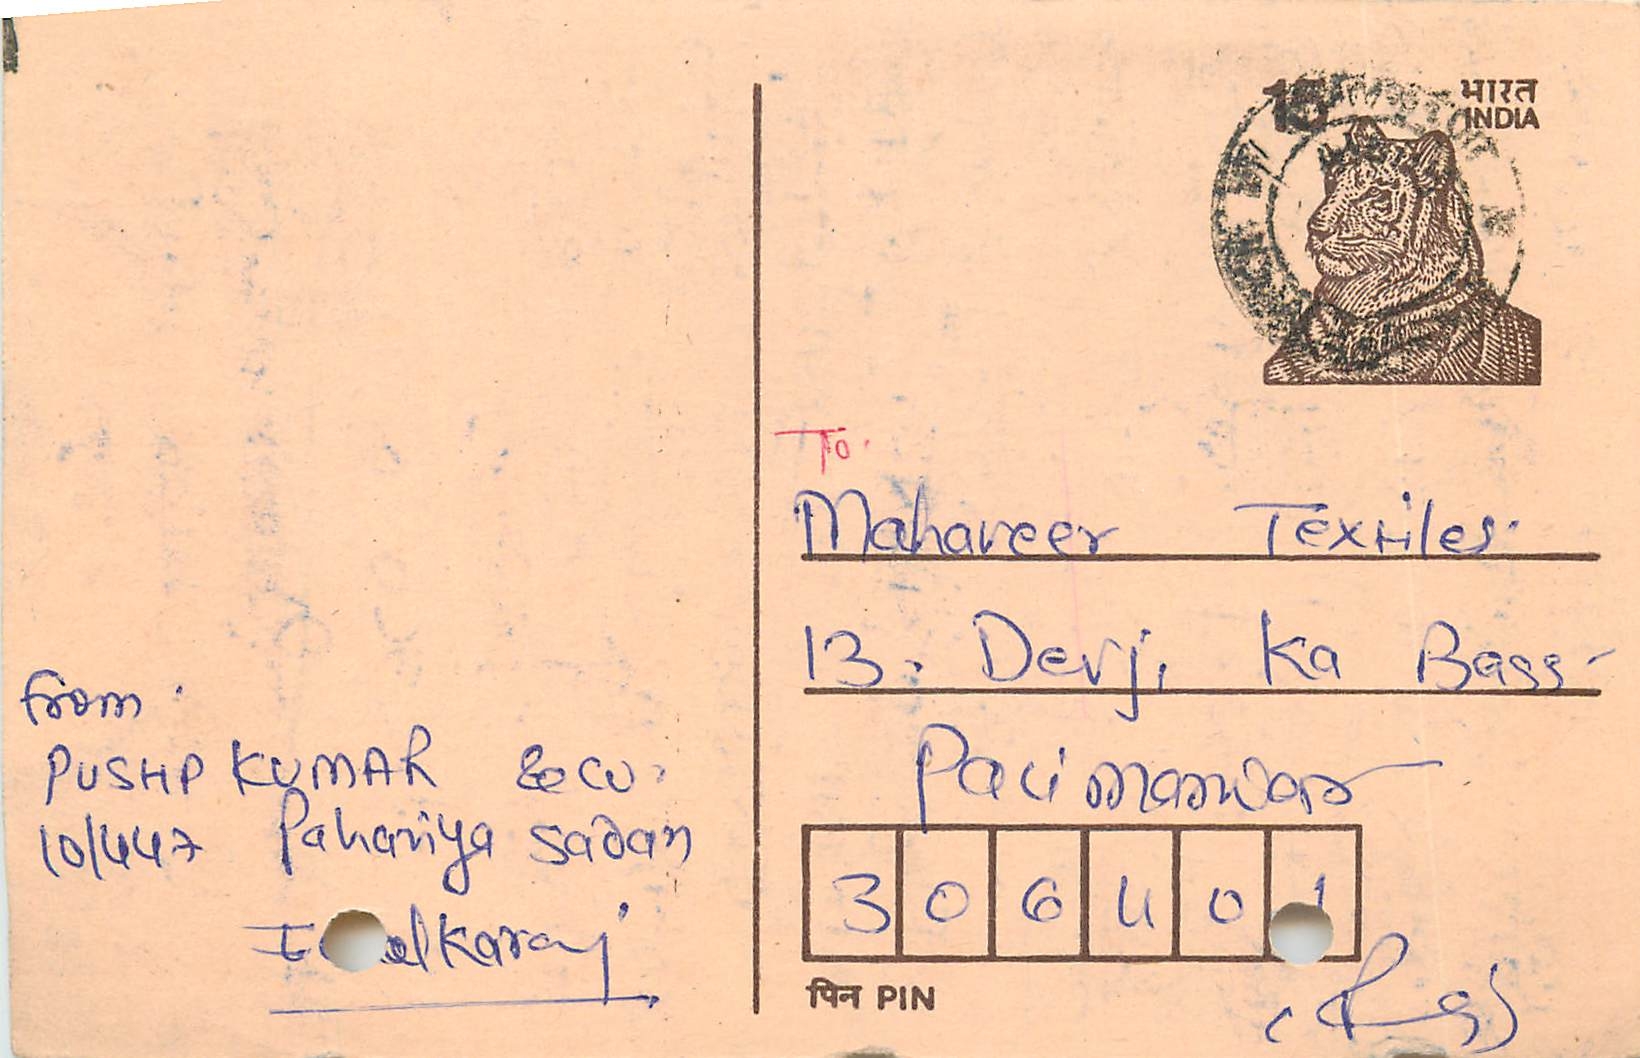 15
भारत
INDIA
To.
Mahaveer Textiles.
13. Devji Ka Bass
Pali marwar
306401
पिन PIN
(Raj)
from.
PUSHP KUMAR & CO.
10/447 Pahariya sadan